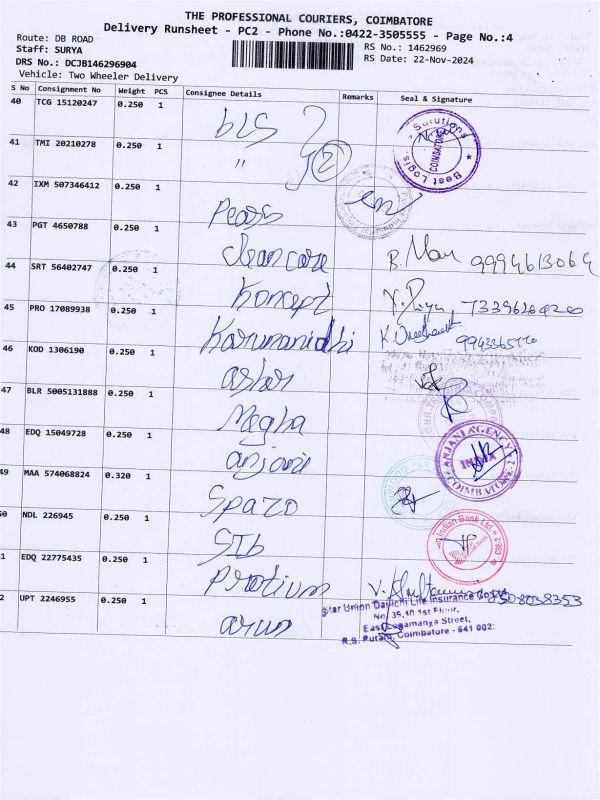 THE PROFESSIONAL COURIERS, COIMBATORE
Delivery Runsheet - PC2 - Phone No.:0422-3505555 - Page No.:4
Route: DB ROAD
Staff: SURYA
DRS No.: DCJB146296904
Vehicle: Two Wheeler Delivery
RS No.: 1462969
RS Date: 22-Nov-2024
S No Consignment No Weight PCS Consignee Details Remarks Seal & Signature
40 TCG 15120247 0.250 1 bls
Solutions COIMBATORE Best Logis
41 TMI 20210278 0.250 1 " 2
42 IXM 507346412 0.250 1 Pearls
43 PGT 4650788 0.250 1 Clean care B.
44 SRT 56402747 0.250 1 Koncept V. Priya
45 PRO 17089938 0.250 1 Karunanidhi K.
46 KOD 1306190 0.250 1
47 BLR 5005131888 0.250 1 Megha
48 EDQ 15049728 0.250 1 anjani
ANJANI AGENCY INDIA COIMBATORE-2
49 MAA 574068824 0.320 1 Spazo
50 NDL 226945 0.250 1 SIb
Indian Bank Ltd
1 EDQ 22775435 0.250 1 Protium V.
2 UPT 2246955 0.250 1 arun
Star Union Dai-ichi Life Insurance Co
No. 39,40 1st Floor,
East Logamanya Street,
R.S. Puram, Coimbatore - 641 002.